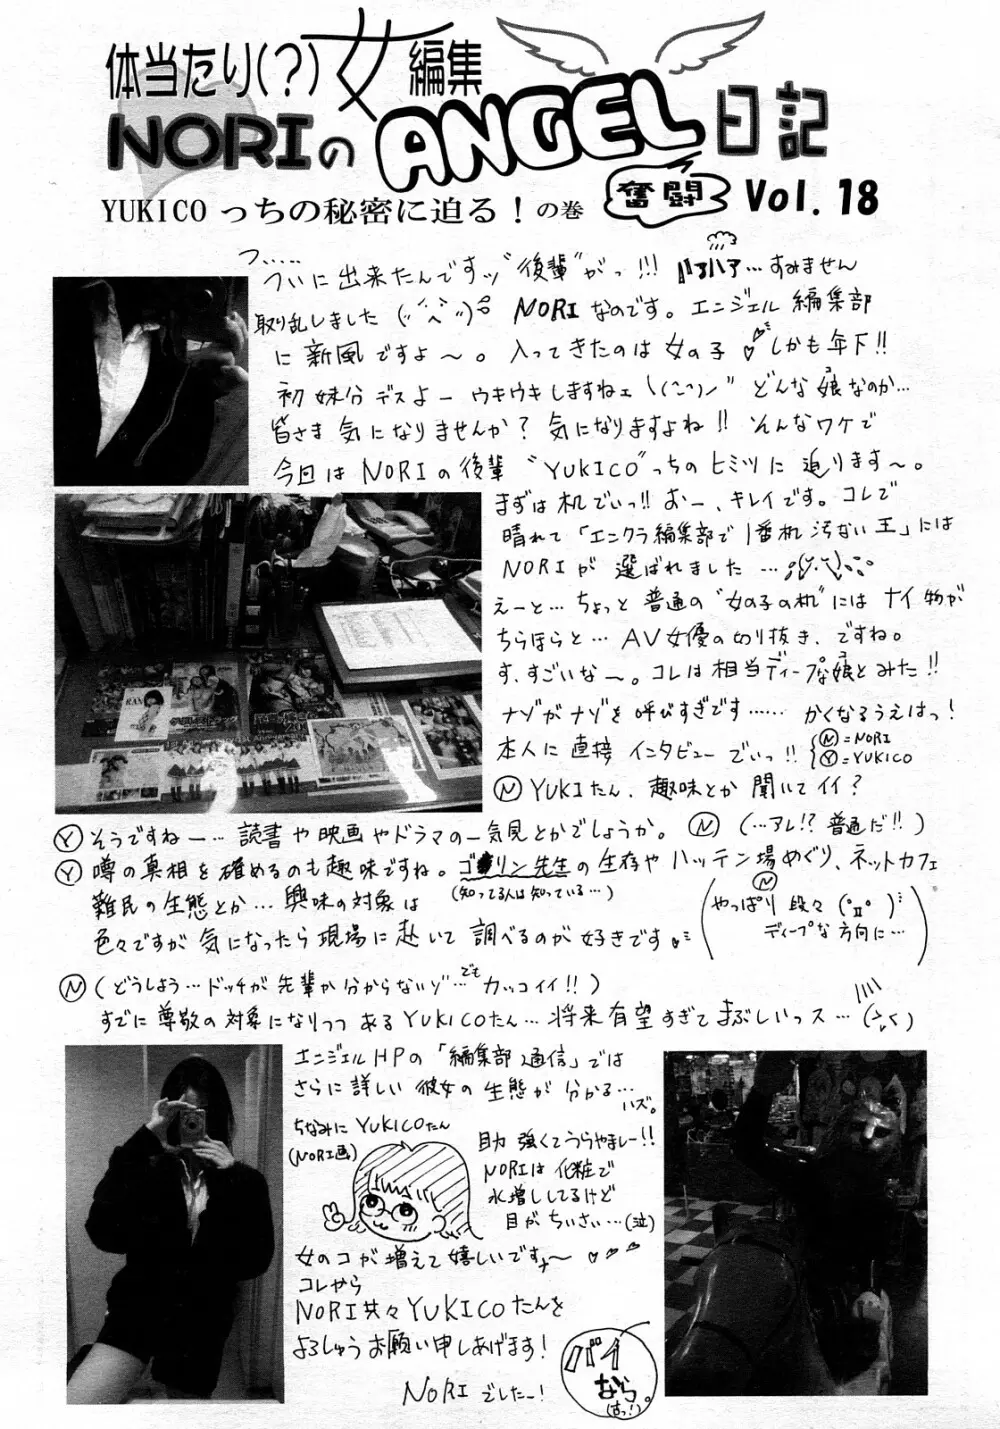 体当たり(?)女編集
NORIのANGEL日記
奮闘 Vol. 18
YUKICOっちの秘密に迫る！の巻
つ……
ついに出来たんですッ"後輩"がっ!!! ハァハァ…すみません
取り乱しました NORIなのです。エンジェル編集部
に新風ですよ〜。入ってきたのは女の子 しかも年下!!
初妹分デスよー ウキウキしますねェ どんな娘なのか…
皆さま気になりませんか？気になりますよね!! そんなワケで
今回はNORIの後輩"YUKICO"っちのヒミツに迫ります〜。
まずは机でいっ!! おー、キレイです。コレで
晴れて「エンクラ編集部で1番机汚ない王」には
NORIが選ばれました…
えーと…ちょっと普通の"女の子の机"にはナイ物が
ちらほらと…AV女優の切り抜き、ですね。
す、すごいな〜。コレは相当ディープな娘とみた!!
ナゾがナゾを呼びすぎです…… かくなるうえはっ!
本人に直接インタビューでいっ!!
Ⓝ=NORI
Ⓨ=YUKICO
Ⓝ YUKIたん、趣味とか聞いてイイ？
Ⓨ そうですねー…読書や映画やドラマの一気見とかでしょうか。 Ⓝ (…アレ!? 普通だ!!)
Ⓨ 噂の真相を確めるのも趣味ですね。ゴ●リン先生の生存やハッテン場めぐり、ネットカフェ
(知ってる人は知っている…)
難民の生態とか…興味の対象は
色々ですが気になったら現場に赴いて調べるのが好きです
Ⓝ
(やっぱり段々
ディープな方向に…)
Ⓝ (どうしよう…ドッチが先輩か分からないゾ…でもカッコイイ!!)
すでに尊敬の対象になりつつあるYUKICOたん…将来有望すぎてまぶしいっス…
エンジェルHPの「編集部通信」では
さらに詳しい彼女の生態が分かる…
ハズ。
ちなみにYUKICOたん
(NORI画)
目力強くてうらやましー!!
NORIは化粧で
水増ししてるけど
目がちいさい…(泣)
女のコが増えて嬉しいです〜
コレから
NORI共々YUKICOたんを
よろしゅうお願い申しあげます!
NORIでしたー!
バイ
なら。
(はっ!)